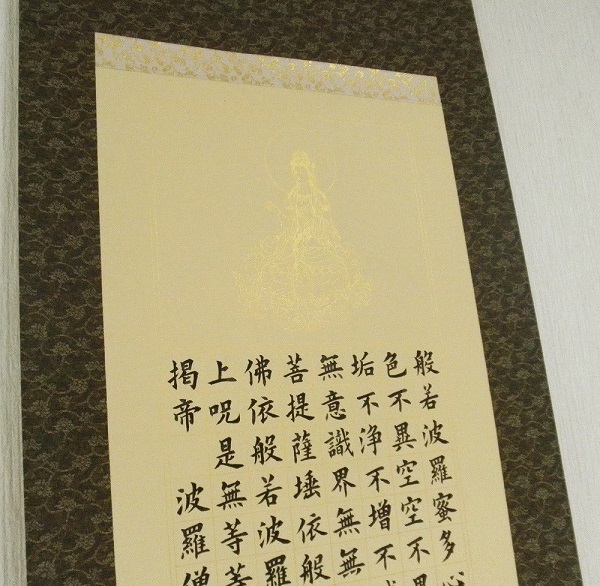 般若波羅蜜多心
色不異空空不異
垢不淨不增不
無意識界無無
菩提薩埵依般
佛依般若波羅
上呪是無等等
揭帝 波羅僧